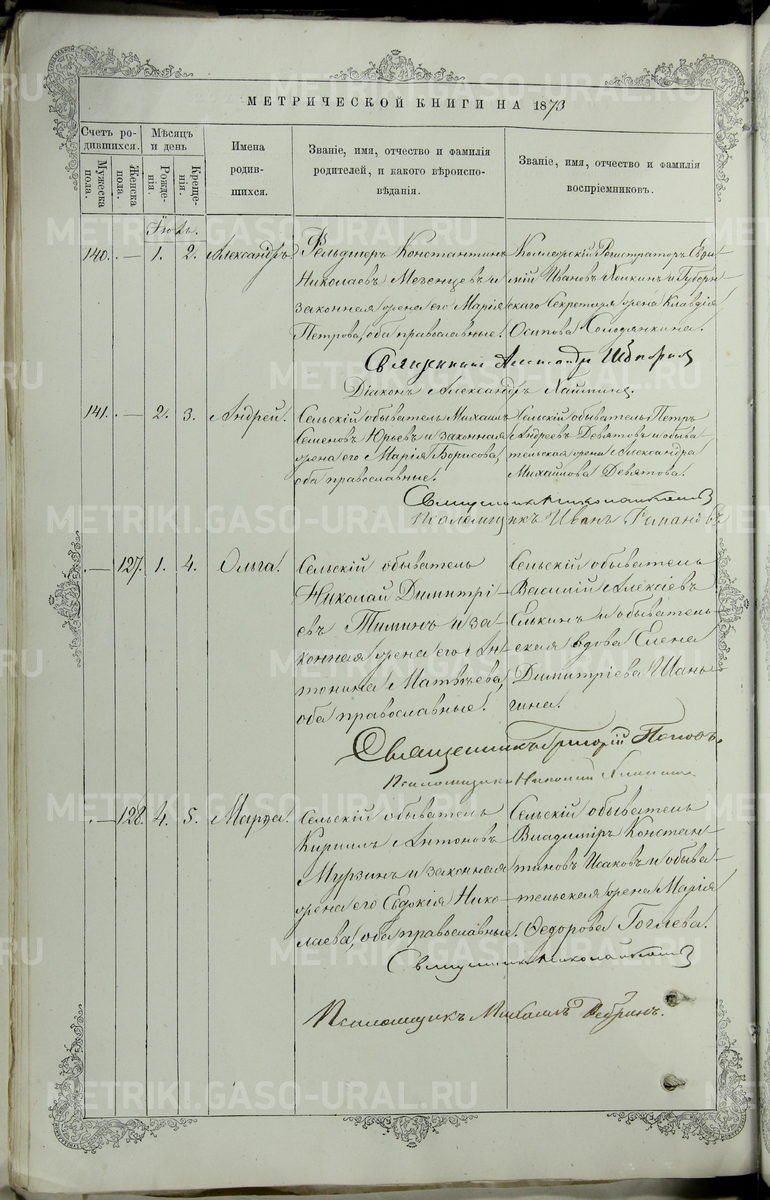 МЕТРИЧЕСКОЙ КНИГИ НА 1873
Счетъ ро-
дившихся.
Мужеска
пола.
Женска
пола.
Мѣсяцъ
и день
Рожде-
нія.
Креще-
нія.
Имена
родив-
шихся.
Званіе, имя, отчество и фамилія
родителей, и какого вѣроиспо-
вѣданія.
Званіе, имя, отчество и фамилія
воспріемниковъ.
140. — 1. 2. Александръ
Фельдшеръ Константинъ
Николаевъ Мезенцевъ и
законная жена его Марія
Петрова, оба православные.
Коллежскій Регистраторъ
Ивановъ и Губерн-
скаго Секретаря жена Клавдія
Осипова Солодянкина.
Священникъ Александръ
Діаконъ Александръ
141. — 2. 3. Андрей.
Сельскій обыватель Михаилъ
Семеновъ Юрьевъ и законная
жена его Марія Борисова,
оба православные.
Сельскій обыватель Петръ
Андреевъ Девятовъ и обыва-
тельская жена Александра
Михайлова Девятова.
Священникъ Николай
Псаломщикъ Иванъ Романовъ
— 127. 1. 4. Ольга.
Сельскій обыватель
Николай Димитрі-
евъ Тиминъ и за-
конная жена его Ан-
тонина Матвѣева,
оба православные.
Сельскій обыватель
Василій Алексѣевъ
Елькинъ и обыватель-
ская вдова Елена
Димитріева Шань-
гина.
Священникъ Григорій Поповъ.
Псаломщикъ Николай
— 128. 4. 5. Марфа.
Сельскій обыватель
Кириллъ Антоновъ
Мурзинъ и законная
жена его Евдокія Нико-
лаева, оба православные.
Сельскій обыватель
Владиміръ Констан-
тиновъ Исаковъ и обыва-
тельская жена Марія
Ѳедорова Гоглева.
Священникъ Николай
Псаломщикъ Михаилъ
METRIKI.GASO-URAL.RU